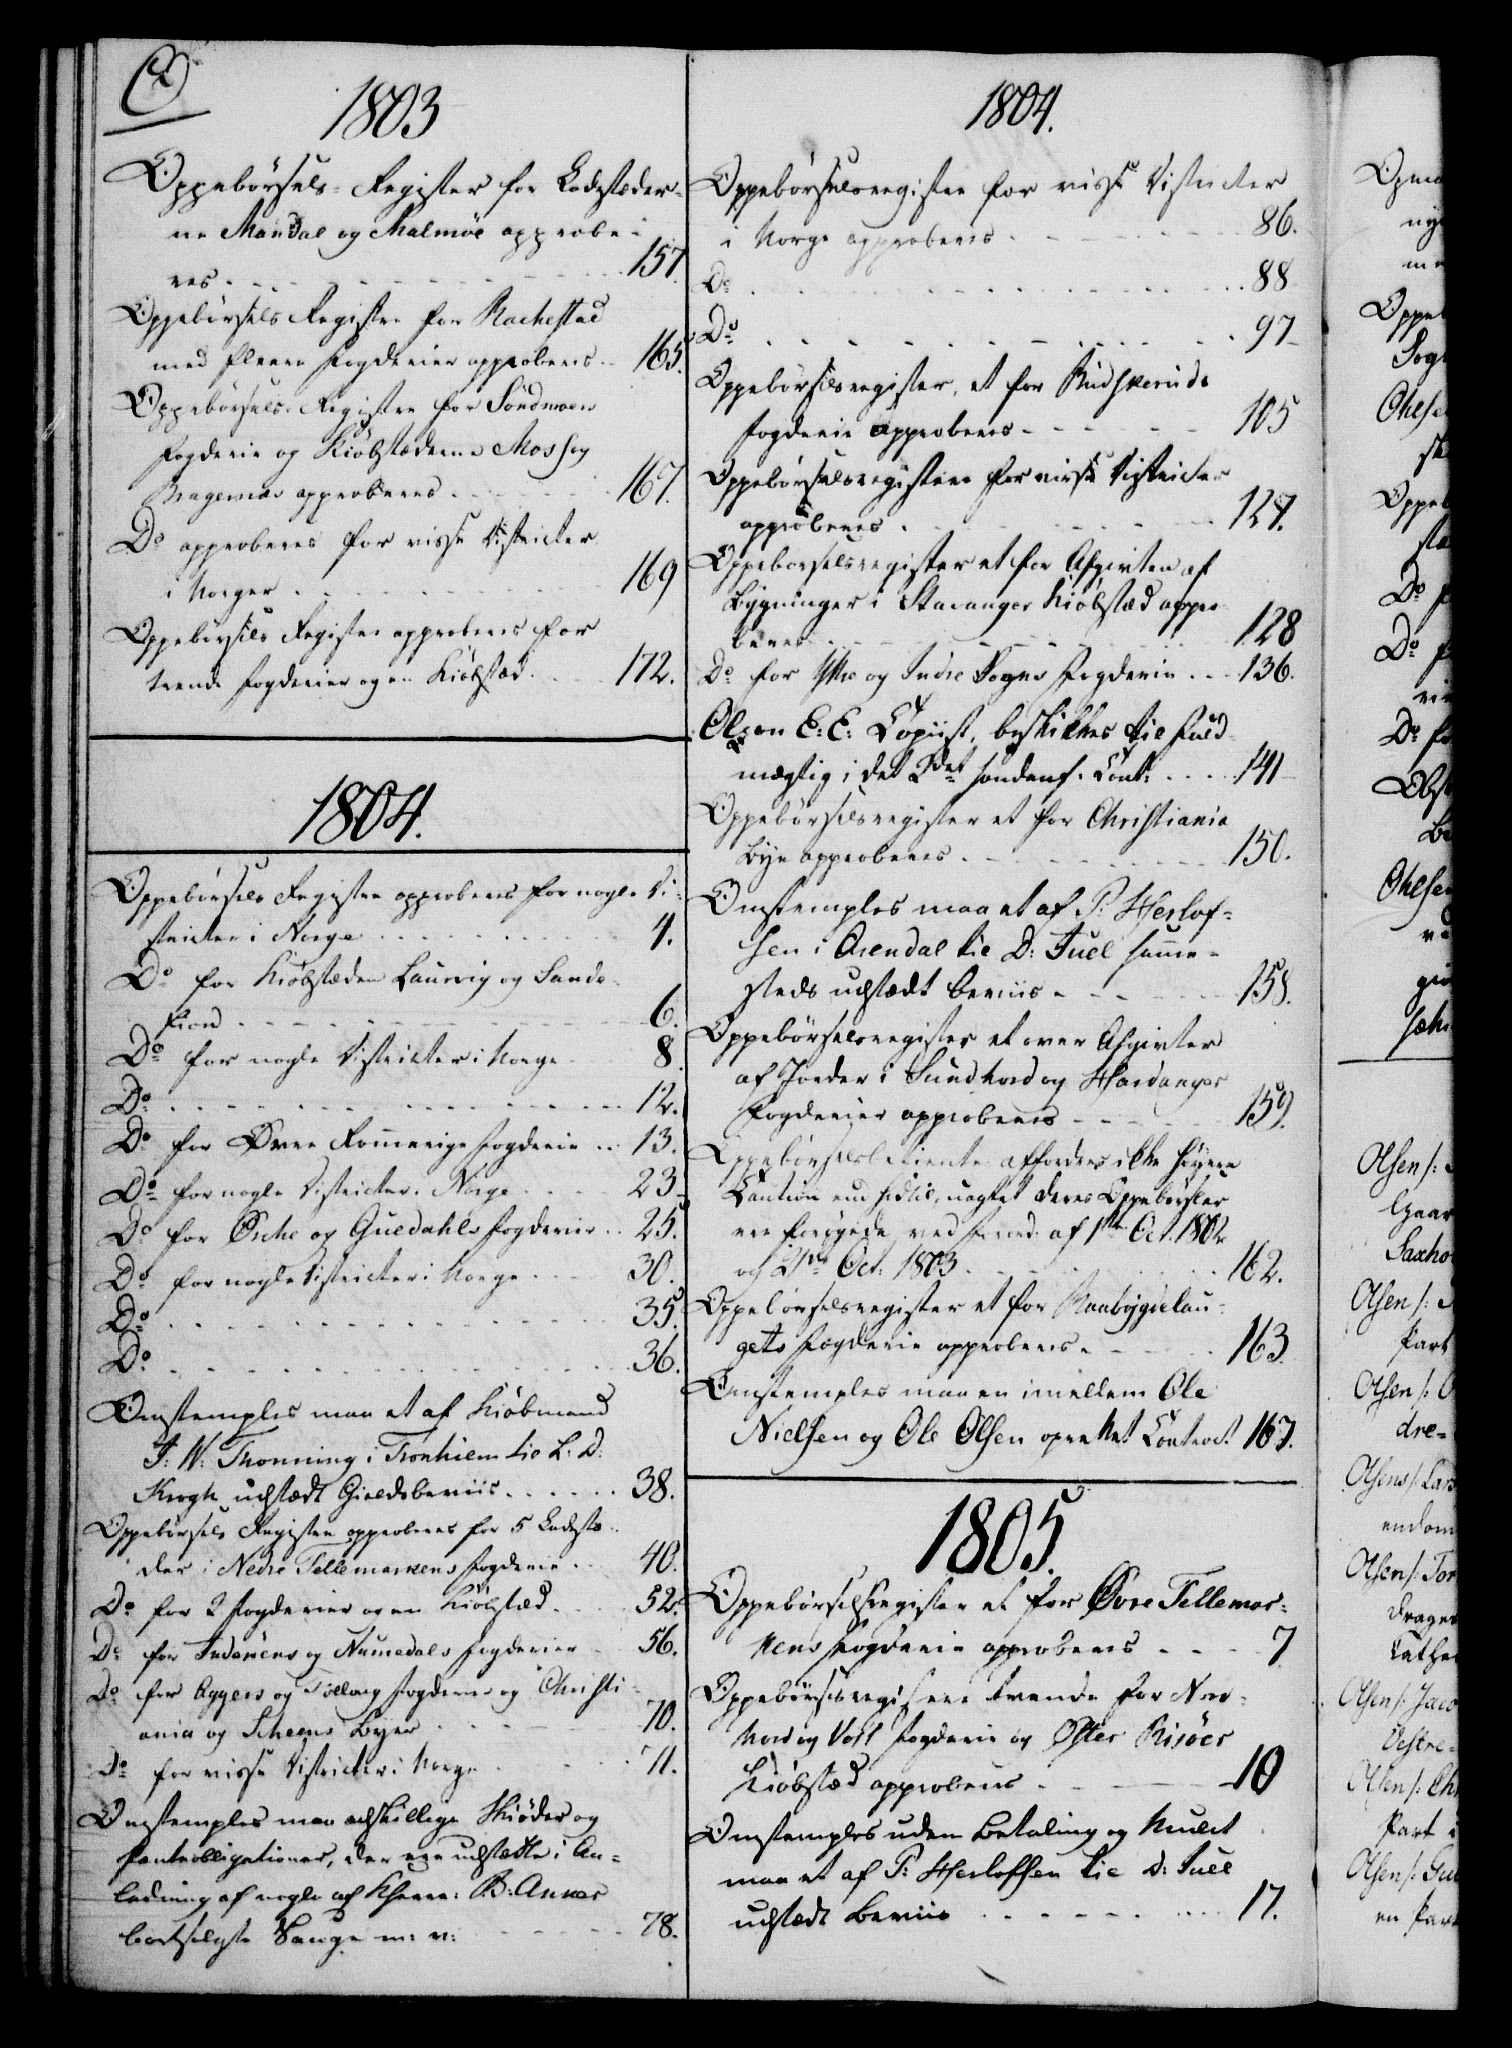 O
1803
Oppebörsels-Register for Ladestæder-
ne Mandal og Malmöe approbe-
res 157.
Oppebörsels Register for Rackestad
med fleere Fogderier approberes 165.
Oppebörsels-Register for Söndmöers
Fogderie og Kiöbstæderne Moss og
Bragernæs approberes 167.
Do approberes for visse Districter
i Norge 169
Oppebörsels Register approberes for
trende Fogderier og en Kiöbstæd 172.
1804.
Oppebörsels Register approberes for nogle Di-
stricter i Norge 4.
Do for Kiöbstæden Laurvig og Sande-
fiord 6.
Do for nogle Districter i Norge 8
Do 12.
Do for Övre Romerige Fogderie 13.
Do for nogle Districter i Norge 23
Do for Orche og Guldahls Fogderier 25.
Do for nogle Districter i Norge 30.
Do 35.
Do 36.
Omstemples maa et af Kiöbmand
J: W: Thonning i Tronhiem til L: D:
Krogh udstædt Gieldsbeviis 38.
Oppebörsels Register approberes for 5 Ladestæ-
der i Nedre Tellemarkens Fogderie 40.
Do for 2 Fogderier og en Kiöbstæd 52.
Do for Inderöens og Numedals Fogderier 56.
Do for Aggers og Folloug Fogderie og Christi-
ania og Scheens Byer 70.
Do for visse Districter i Norge 71.
Omstemples maa adskillige Skiöder og
Pantobligationer, der ere udstædte i An-
ledning af nogle af Kherre: B: Ankers
bortsolgte Sauge m: v: 78.
1804.
Oppebörselsregister for visse Districter
i Norge approberes 86.
Do 88
Do 97
Oppebörselsregister, et for Budskeruds
Fogderie approberes 105
Oppebörselsregistere for visse Districter
approberes 127.
Oppebörselsregister et for Afgivten af
Bygninger i Stavanger Kiöbstæd appro-
beres 128
Do for Yttre og Indre Sogns Fogderie 136.
Olsen E: E: Copiist, beskikkes til Fuld-
mægtig i det 2det söndenf. Cont: 141
Oppebörselsregister et for Christiania
Bye approberes 150.
Omstemples maa et af P: Herlof-
sen i Arendal til D: Juel samme-
steds udstædt beviis 158.
Oppebörselsregister et over Afgivter
af Jorder i Sundhord og Hardanger
Fogderier approberes 159.
Oppebörselsbetiente affordres ikke höyere
Caution end hidtil, uagtet deres Oppebörsler
ere forögede ved Forord. af 1ste Oct. 1802
og Oct: 1803 162.
Oppebörselsregister et for Raabygdelau-
gets Fogderie approberes 163.
Omstemples maa en imellem Ole
Nielsen og Ole Olsen oprettet Contract 167.
1805.
Oppebörselsregister et for Övre Tellemar-
kens Fogderie approberes 7
Oppebörselsregistere trende for Nor-
hord og Vos Fogderie og Öster Risöer
Kiöbstæd approberes 10
Omstemples uden Betaling og Mulct
maa et af P: Herlofsen til D: Juel
udstædt Beviis 17.